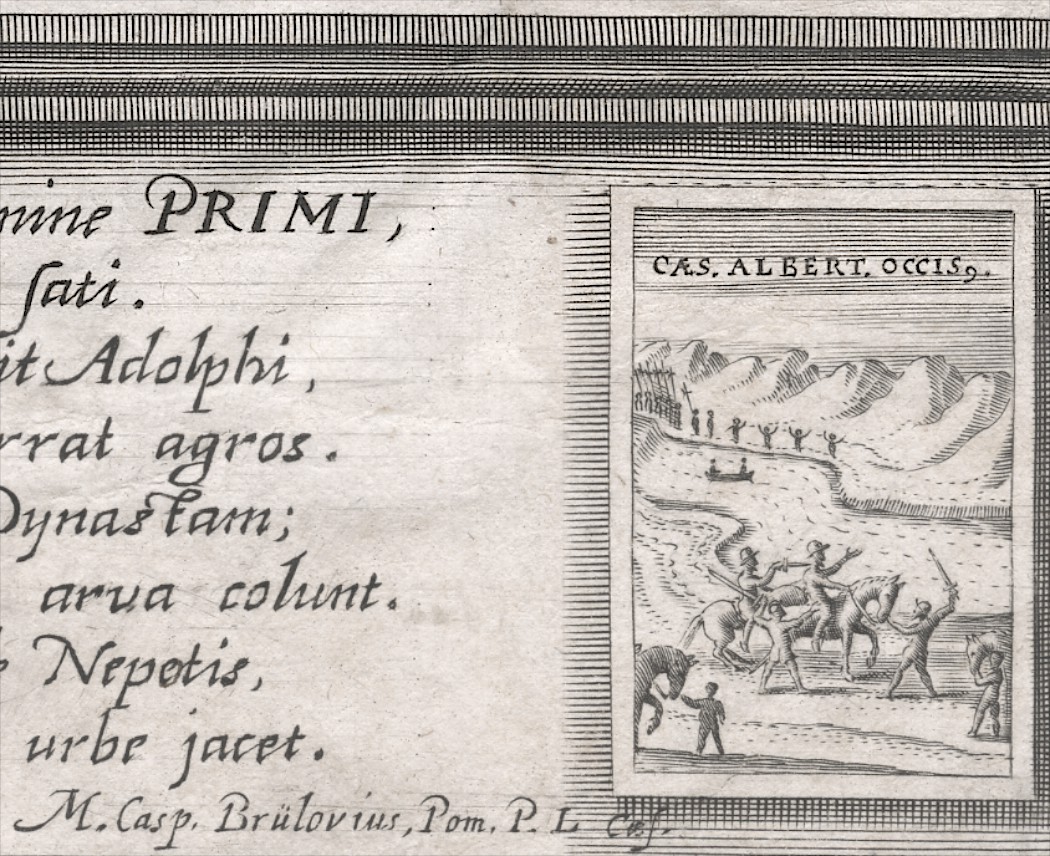 mine PRIMI,
ſati.
it Adolphi,
rrat agros.
Dynastam;
arva colunt.
Nepotis,
urbe jacet.
M. Casp. Brülovius, Pom. P. L. Cæſ.
CÆS. ALBERT. OCCISꝰ.